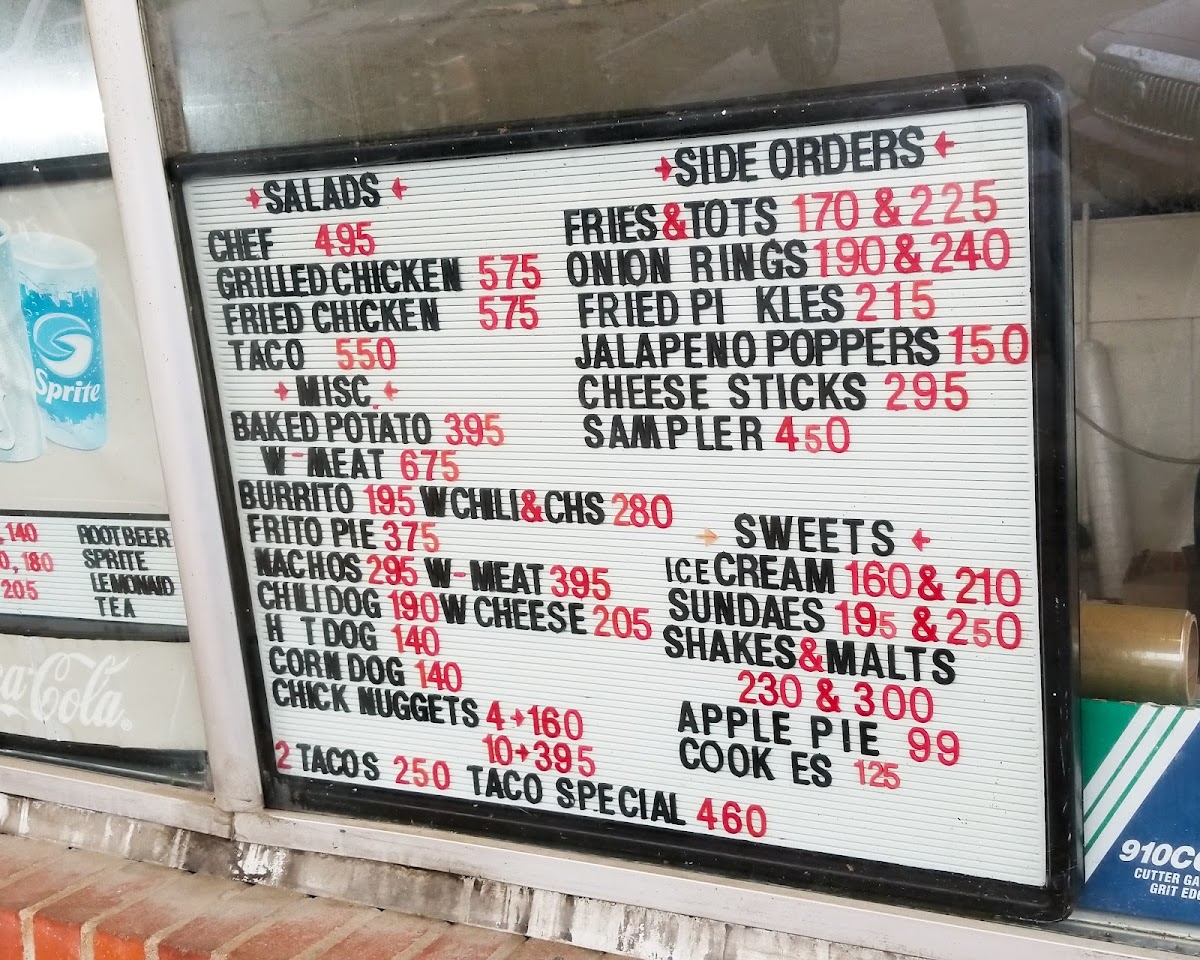 SALADS
CHEF 495
GRILLED CHICKEN 575
FRIED CHICKEN 575
TACO 550
MISC.
BAKED POTATO 395
W-MEAT 675
BURRITO 195 W CHILI & CHS 280
FRITO PIE 375
NACHOS 295 W-MEAT 395
CHILI DOG 190 W CHEESE 205
H T DOG 140
CORN DOG 140
CHICK NUGGETS 4→160
10→395
2 TACOS 250 TACO SPECIAL 460
SIDE ORDERS
FRIES & TOTS 170 & 225
ONION RINGS 190 & 240
FRIED PI KLES 215
JALAPENO POPPERS 150
CHEESE STICKS 295
SAMPLER 450
SWEETS
ICE CREAM 160 & 210
SUNDAES 195 & 250
SHAKES & MALTS
230 & 300
APPLE PIE 99
COOK ES 125
Sprite
140 ROOT BEER
0, 180 SPRITE
205 LEMONAID
TEA
ca-Cola
910CU
CUTTER GA
GRIT EDG